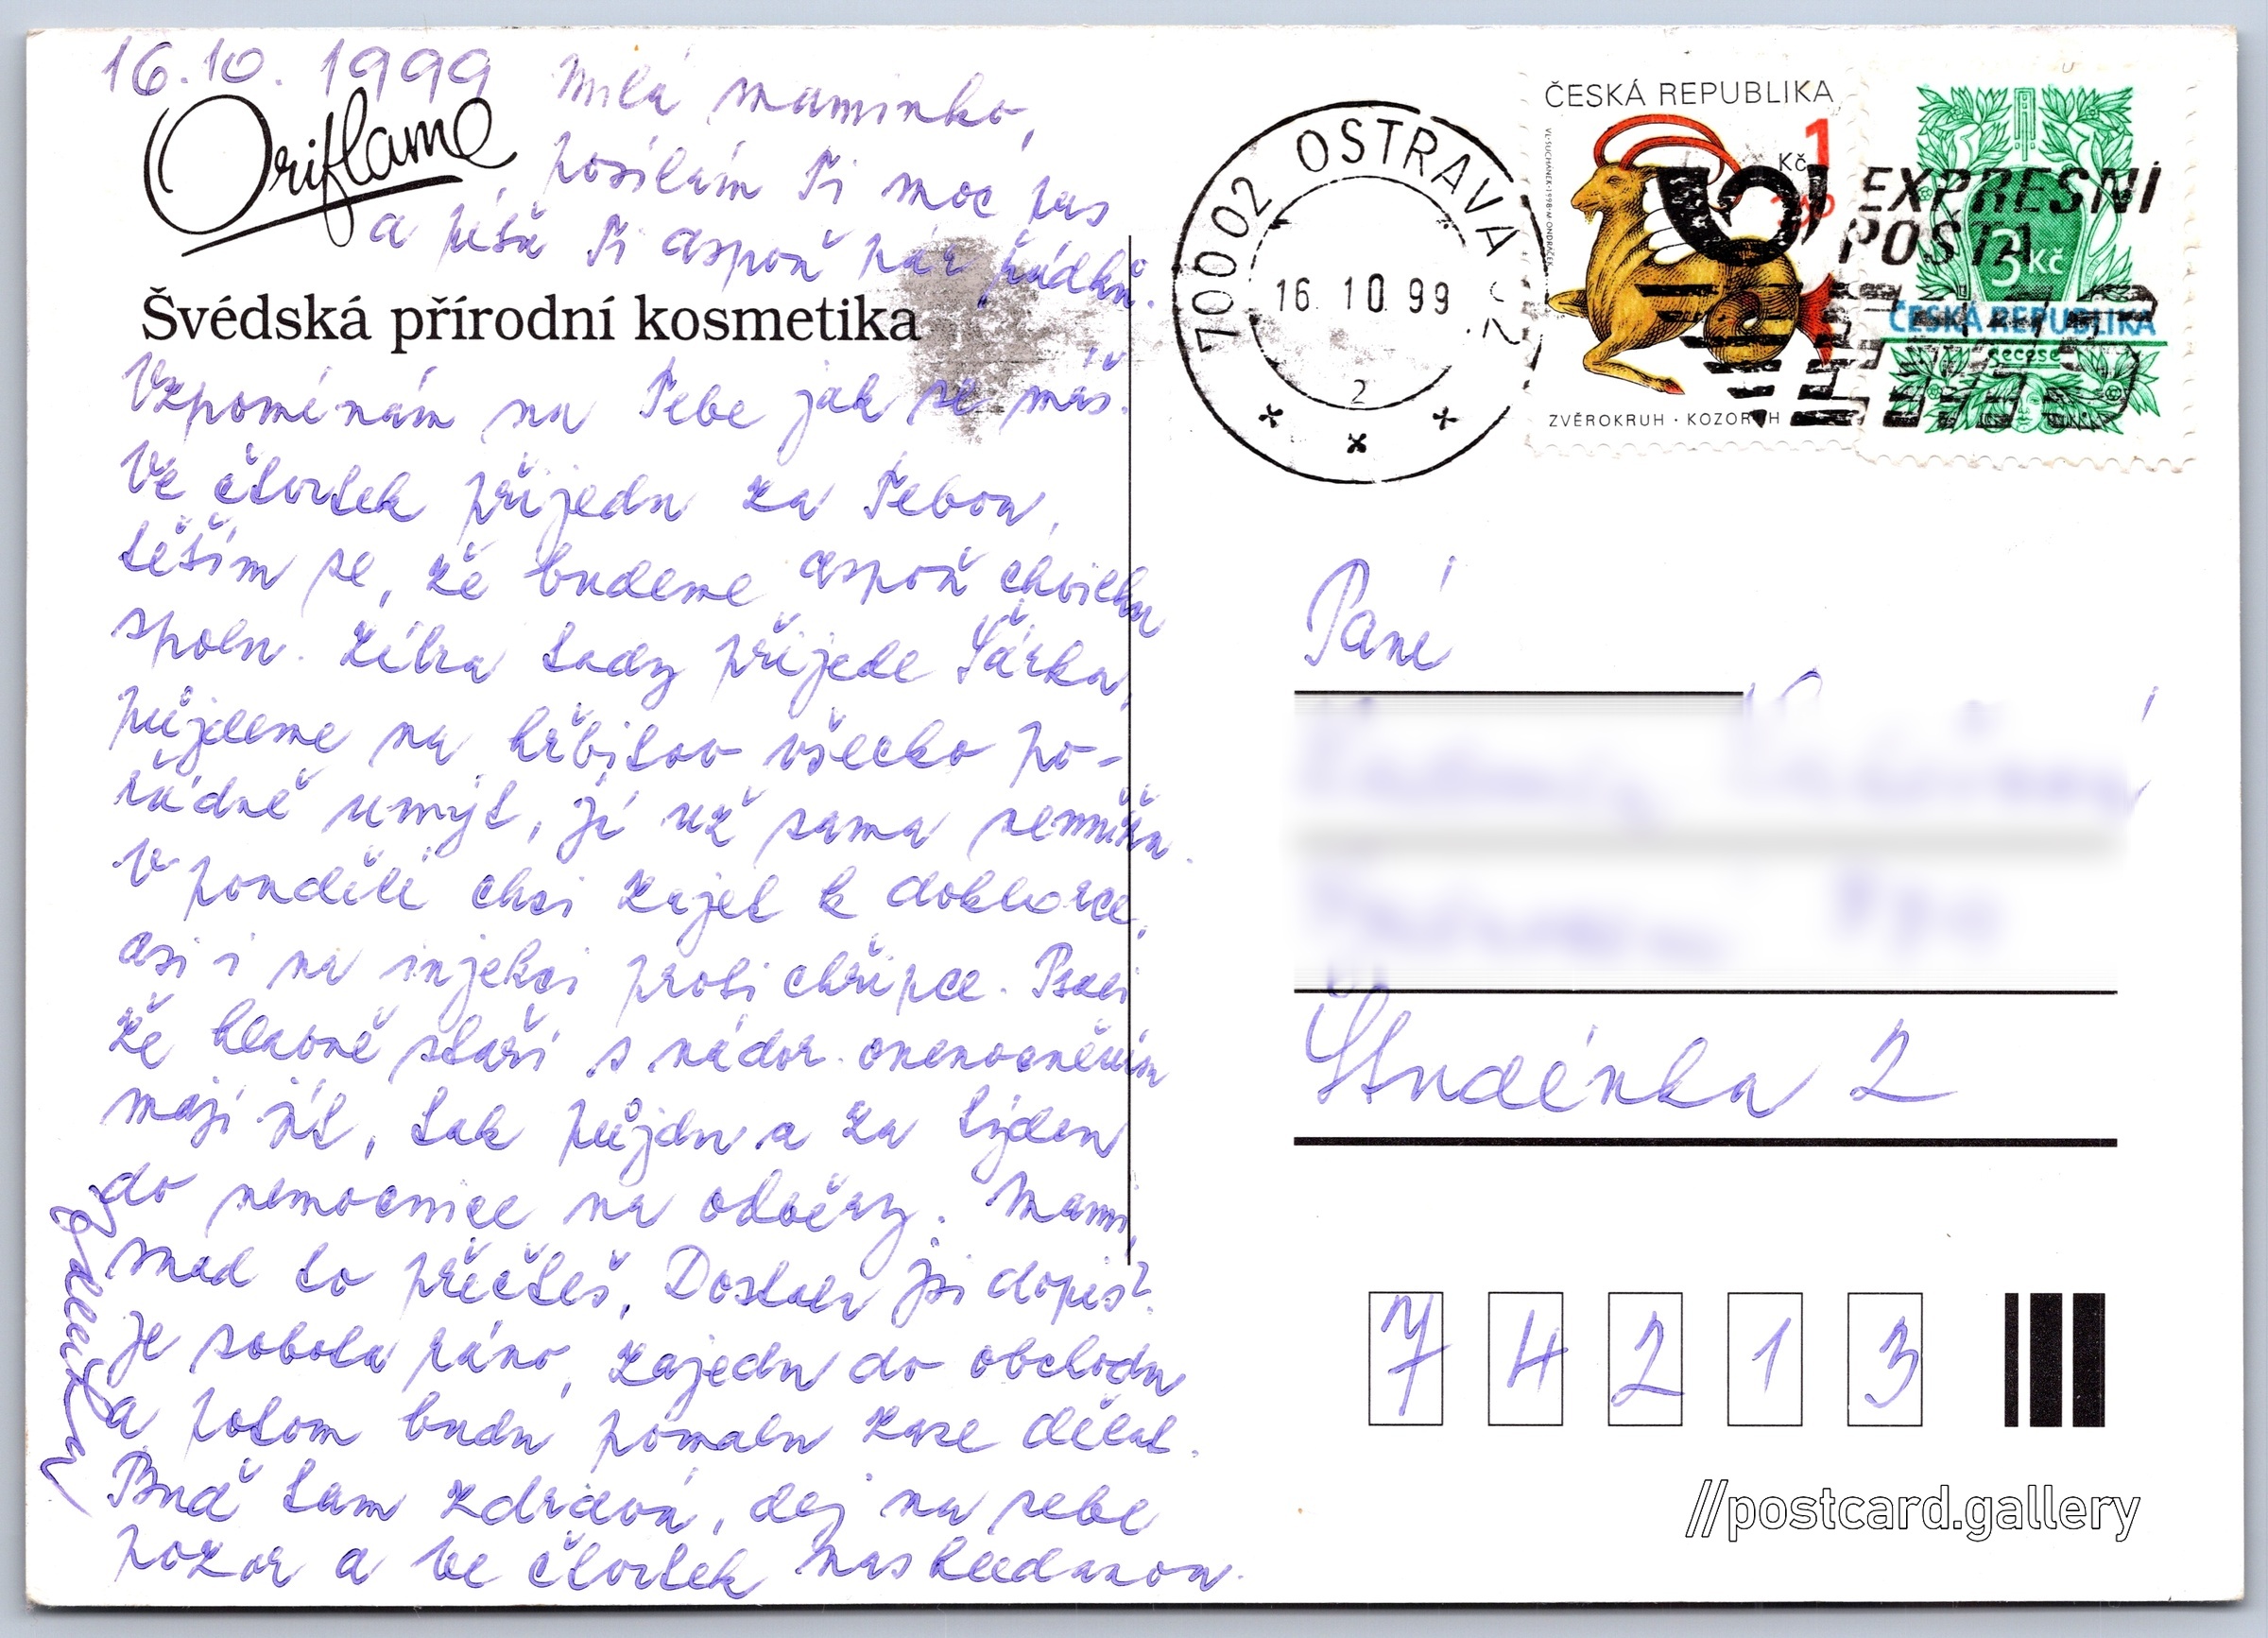 16.10.1999 Milá maminko,
Oriflame
posílám Ti moc pus
a píšu Ti aspoň pár řádků.
Švédská přírodní kosmetika
Vzpomínám na Tebe jak se máš.
Ve čtvrtek přijedu za Tebou,
těším se, že budeme aspoň chvilku
spolu. Zítra tady přijede Šárka,
půjdeme na hřbitov všecko po-
řádně umýt, já už sama nemůžu.
V pondělí chci zajet k doktorce,
asi i na injekci proti chřipce. Psali
že hlavně staří s nádor. onemocněním
mají jít, tak půjdu a za týden
do nemocnice na odběry. Mami
snad to přečteš. Dostala jsi dopis?
Je sobota ráno, zajedu do obchodu
a potom budu pomalu zase dělat.
Buď tam zdravá, dej na sebe
pozor a ve čtvrtek nashledanou.
70002 OSTRAVA 02
16.10.99
2
ČESKÁ REPUBLIKA
1
Kč
VL. SUCHÁNEK · 1998 · M. ONDRÁČEK
ZVĚROKRUH · KOZOROH
EXPRESNÍ
POŠTA
3 Kč
ČESKÁ REPUBLIKA
secese
Paní
Studénka 2
7 4 2 1 3
//postcard.gallery